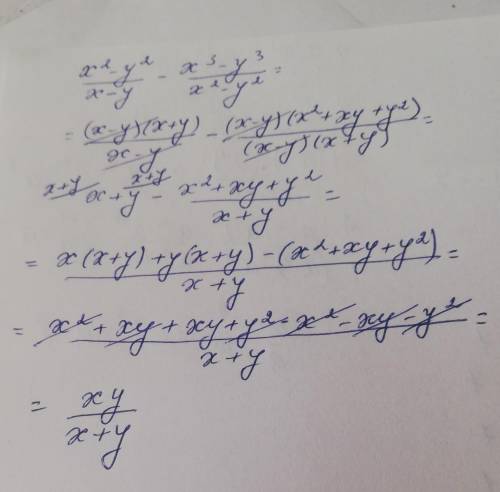 (x²-y²)/(x-y) - (x³-y³)/(x²-y²) =
= ((x-y)(x+y))/(x-y) - ((x-y)(x²+xy+y²))/((x-y)(x+y)) =
x+y x+y
x+y - (x²+xy+y²)/(x+y) =
= (x(x+y)+y(x+y)-(x²+xy+y²))/(x+y) =
= (x²+xy+xy+y²-x²-xy-y²)/(x+y) =
= xy/(x+y)